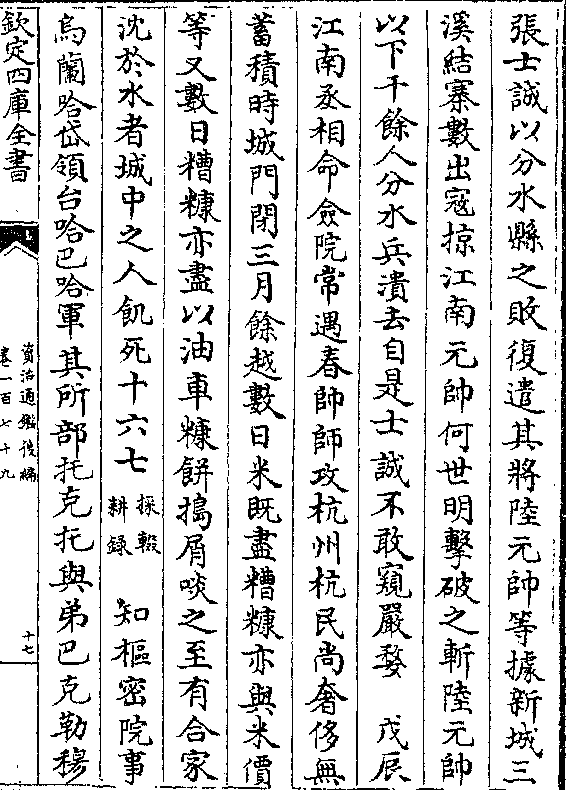 張士誠以分水縣之敗復遣其將陸元帥等據新城三
溪結寨數出寇掠江南元帥何世明擊破之斬陸元帥
以下千餘人分水兵潰去自是士誠不敢窺嚴婺　戊辰
江南丞相命僉院常遇春帥師攻杭州杭民尚奢侈無
蓄積時城門閉三月餘越數日米既盡糟糠亦與米價
等又數日糟糠亦盡以油車糠餅搗屑啖之至有合家
沈於水者城中之人飢死十六七
採輟
耕録
知樞密院事
烏蘭哈岱領台哈巴哈軍其所部托克托與弟巴克勒穆
欽定四庫全書
資治通鑑後編
卷一百七十九
十七